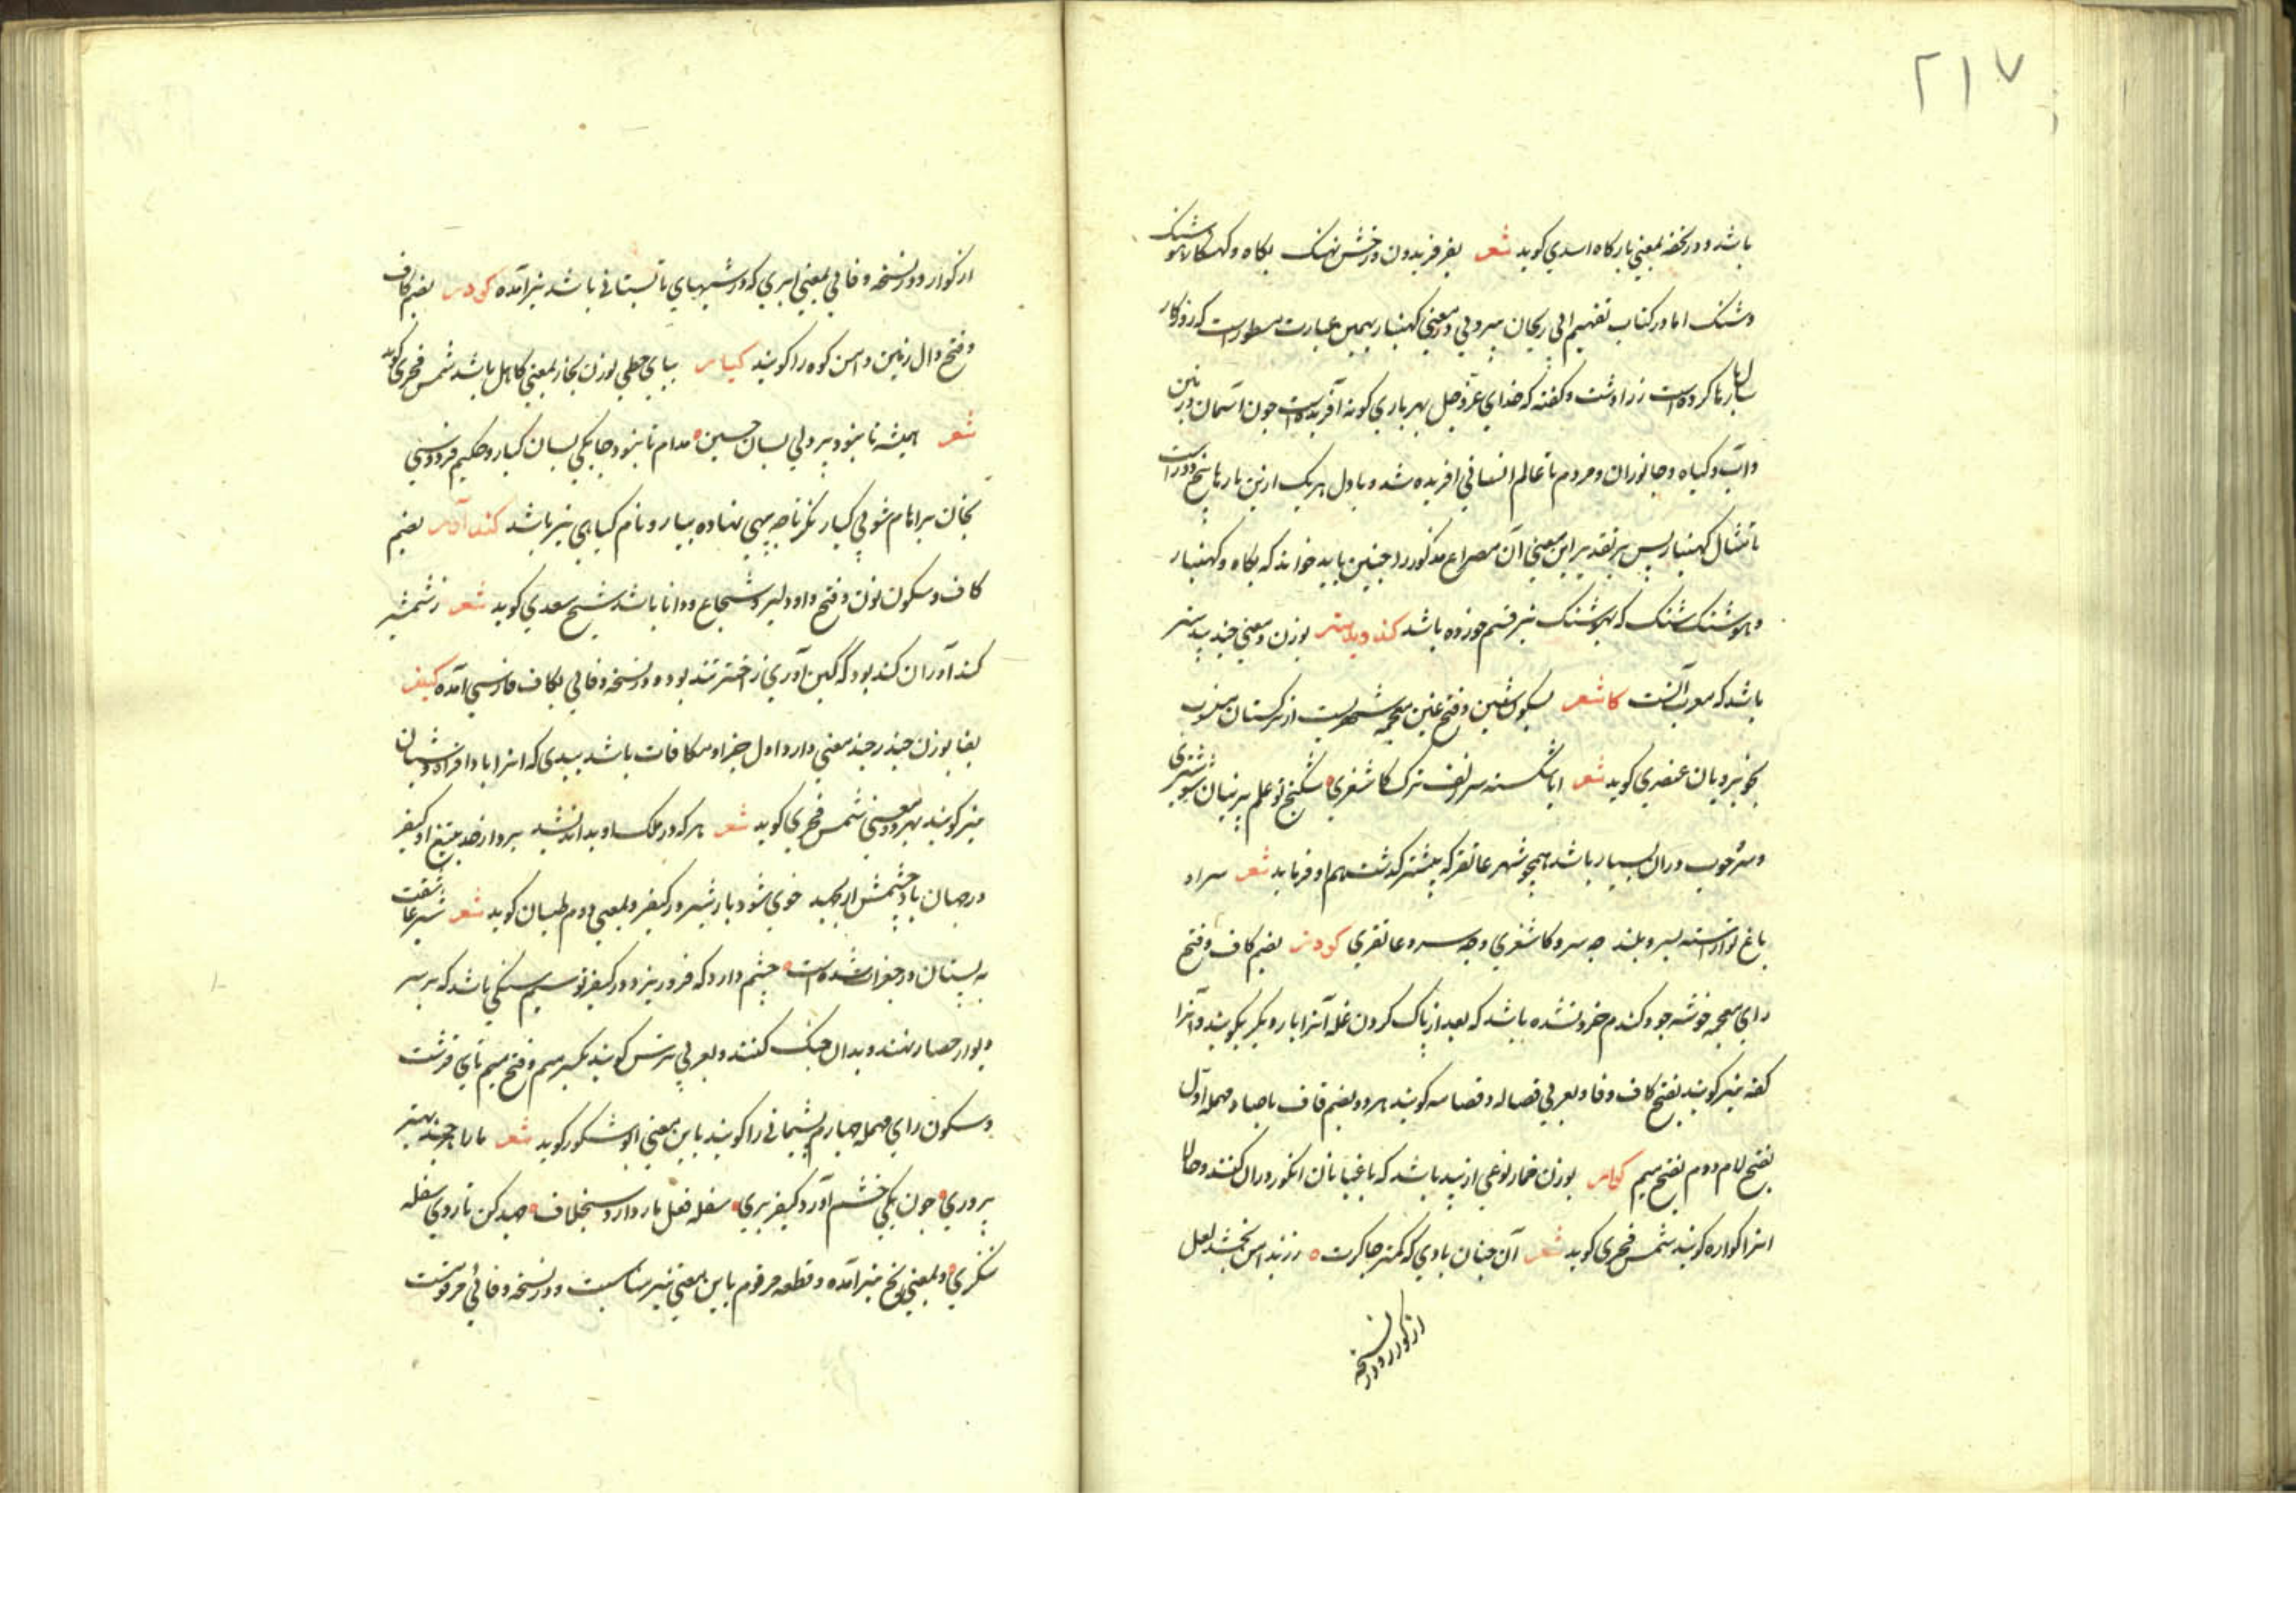 ۲۱۷
باشد و در تحفه بمعنی بارگاه اسدی کوید شعر بفر فریدون و رخش نهنک بکاه و کهنبار هوشنک
وشنک اما در کتاب تفهیم ابی ریحان بیرونی در معنی کهنبار بهمین عبارت مسطورست که روزکار
سال پارها کرده است زرادشت و کفته که خدای عز و جل بهر پاری کونه آفریده است جون آسمان و زمین
و آب و کیاه و جانوران و مردم تا عالم انسانی افریده شد و باول هر یک ازین پارها پنج روزست
نامشان کهنبار پس بر تقدیر این معنی آن مصراع مذکور را جنین باید خواند که بکاه و کهنبار
و هوشنک شنک که بهوشنک نیز قسم خورده باشد کندبیدستر بوزن و معنی جندبیدستر
باشد که معرب آنست کاشغر بسکون شین و فتح غین معجمه شهریست از ترکستان منسوب
بخوبرویان عنصری کوید شعر ایا شکسته سر زلف ترک کاشغری شکنج تو علم پرنیان شوشتری
و سرو خوب در ان بسیار باشد همجو شهر عاتفر که پیشتر کذشت هم او فرماید شعر سراد
باغ تو اراسته بسرو بلند جه سرو کاشغری و جه سرو عاتفری کوزر بضم کاف و فتح
زای معجمه خوشه جو و کندم خرد نشده باشد که بعد از پاک کردن غله آنرا بار دیکر بکوبند و آنرا
کفه نیز کویند بفتح کاف و فا و بعربی قصاله و قصامه کویند هر دو بضم قاف با صاد مهمله اول
بفتح لام و دوم بفتح میم کوار بوزن خمار نوعی از سبد باشد که باغبانان انکور در ان کنند و حالا
انرا کواره کویند شمس فخری کوید شعر آن جنان بادی که کمتر جاکرت زر بدامن بخشد لعل
از کوار و در نسخه
از کوار و در نسخه وفائی بمعنی ابری که در شبهای تابستانی باشد نیز آمده کودر بضم کاف
و فتح دال زمین دامن کوه را کویند کیار بیای حطی بوزن بخار بمعنی کاهل باشد شمس فخری کوید
شعر همیشه تا نبود پردلی بسان جبین مدام تا نبود جابکی بسان کیار و حکیم فردوسی
بخان براهام شو بی کیار نکر تا جه بینی نهاده بیار و نام کیاهی نیز باشد کندآور بضم
کاف و سکون نون و فتح واو دلیر و شجاع و دانا باشد شیخ سعدی کوید شعر ز شمشیر
کندآوران کند بود که کین آوری ز اختر تند بود و در نسخه وفائی بکاف فارسی آمده کیفر
بفا بوزن حیدر جند معنی دارد اول جزا و مکافات باشد ببدی که انرا باد افراه و پاشیان
نیز کویند بهر دو معنی شمس فخری کوید شعر هر که در ملک او بد اندیشد بردار ضد بتیغ او کیفر
در جهان باد جشمش ار بجهد خوی شود بار شیر در کیفر و بمعنی دوم طیان کوید شعر شیر عاشقت
به پستان در جغرات شده است جشم دارد که فرو ریزد در کیفر تو سیم سنکی باشد که بر سر
دیوار حصار نهند و بدان جنک کنند و بعربی مترس کویند بکسر میم و فتح میم تای قرشت
و سکون رای مهمله جهارم پشیمانی را کویند باین معنی ابوشکور کوید شعر مار را هر جند بهتر
پروری جون یکی خشم آورد کیفر بری سفله فعل مار دارد بیخلاف جهد کن تا روی سفله
ننکری و بمعنی رنج نیز آمده و قطعه مرقوم باین معنی نیز مناسبست و در نسخه وفائی مرقومست